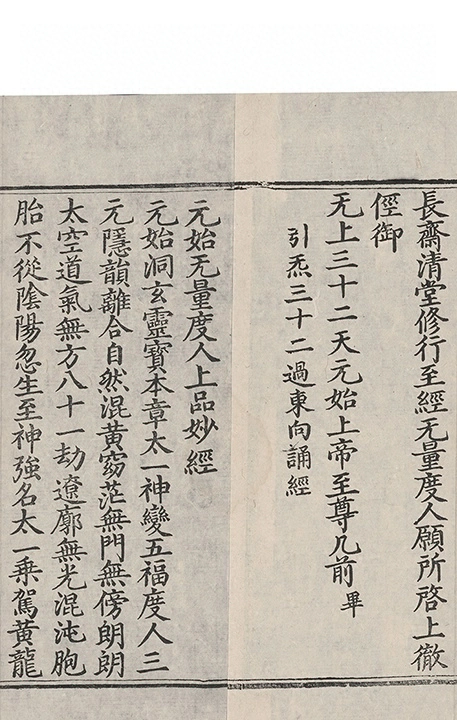 長齋清堂修行至經无量度人願所啓上徹
徑御
无上三十二天元始上帝至尊几前畢
引炁三十二過東向誦經
元始无量度人上品妙經
元始洞玄靈寶本章太一神變五福度人三
元隱韻離合自然混黃窈茫無門無傍朗朗
太空道氣無方八十一劫遼廓無光混沌胞
胎不從陰陽忽生至神強名太一乗駕黃龍